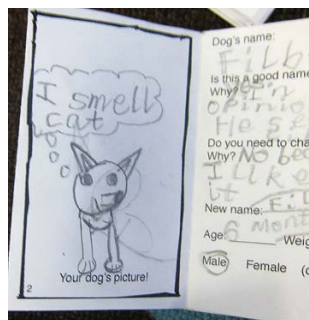 I smell
cat
Your dog's picture!
2
Dog's name:
Filb
Is this a good name
Why? I'n
opinio
He se
Do you need to cha
Why? No bec
I like
it
New name: Fil
Age: 6 mont
Weig
Male Female (c